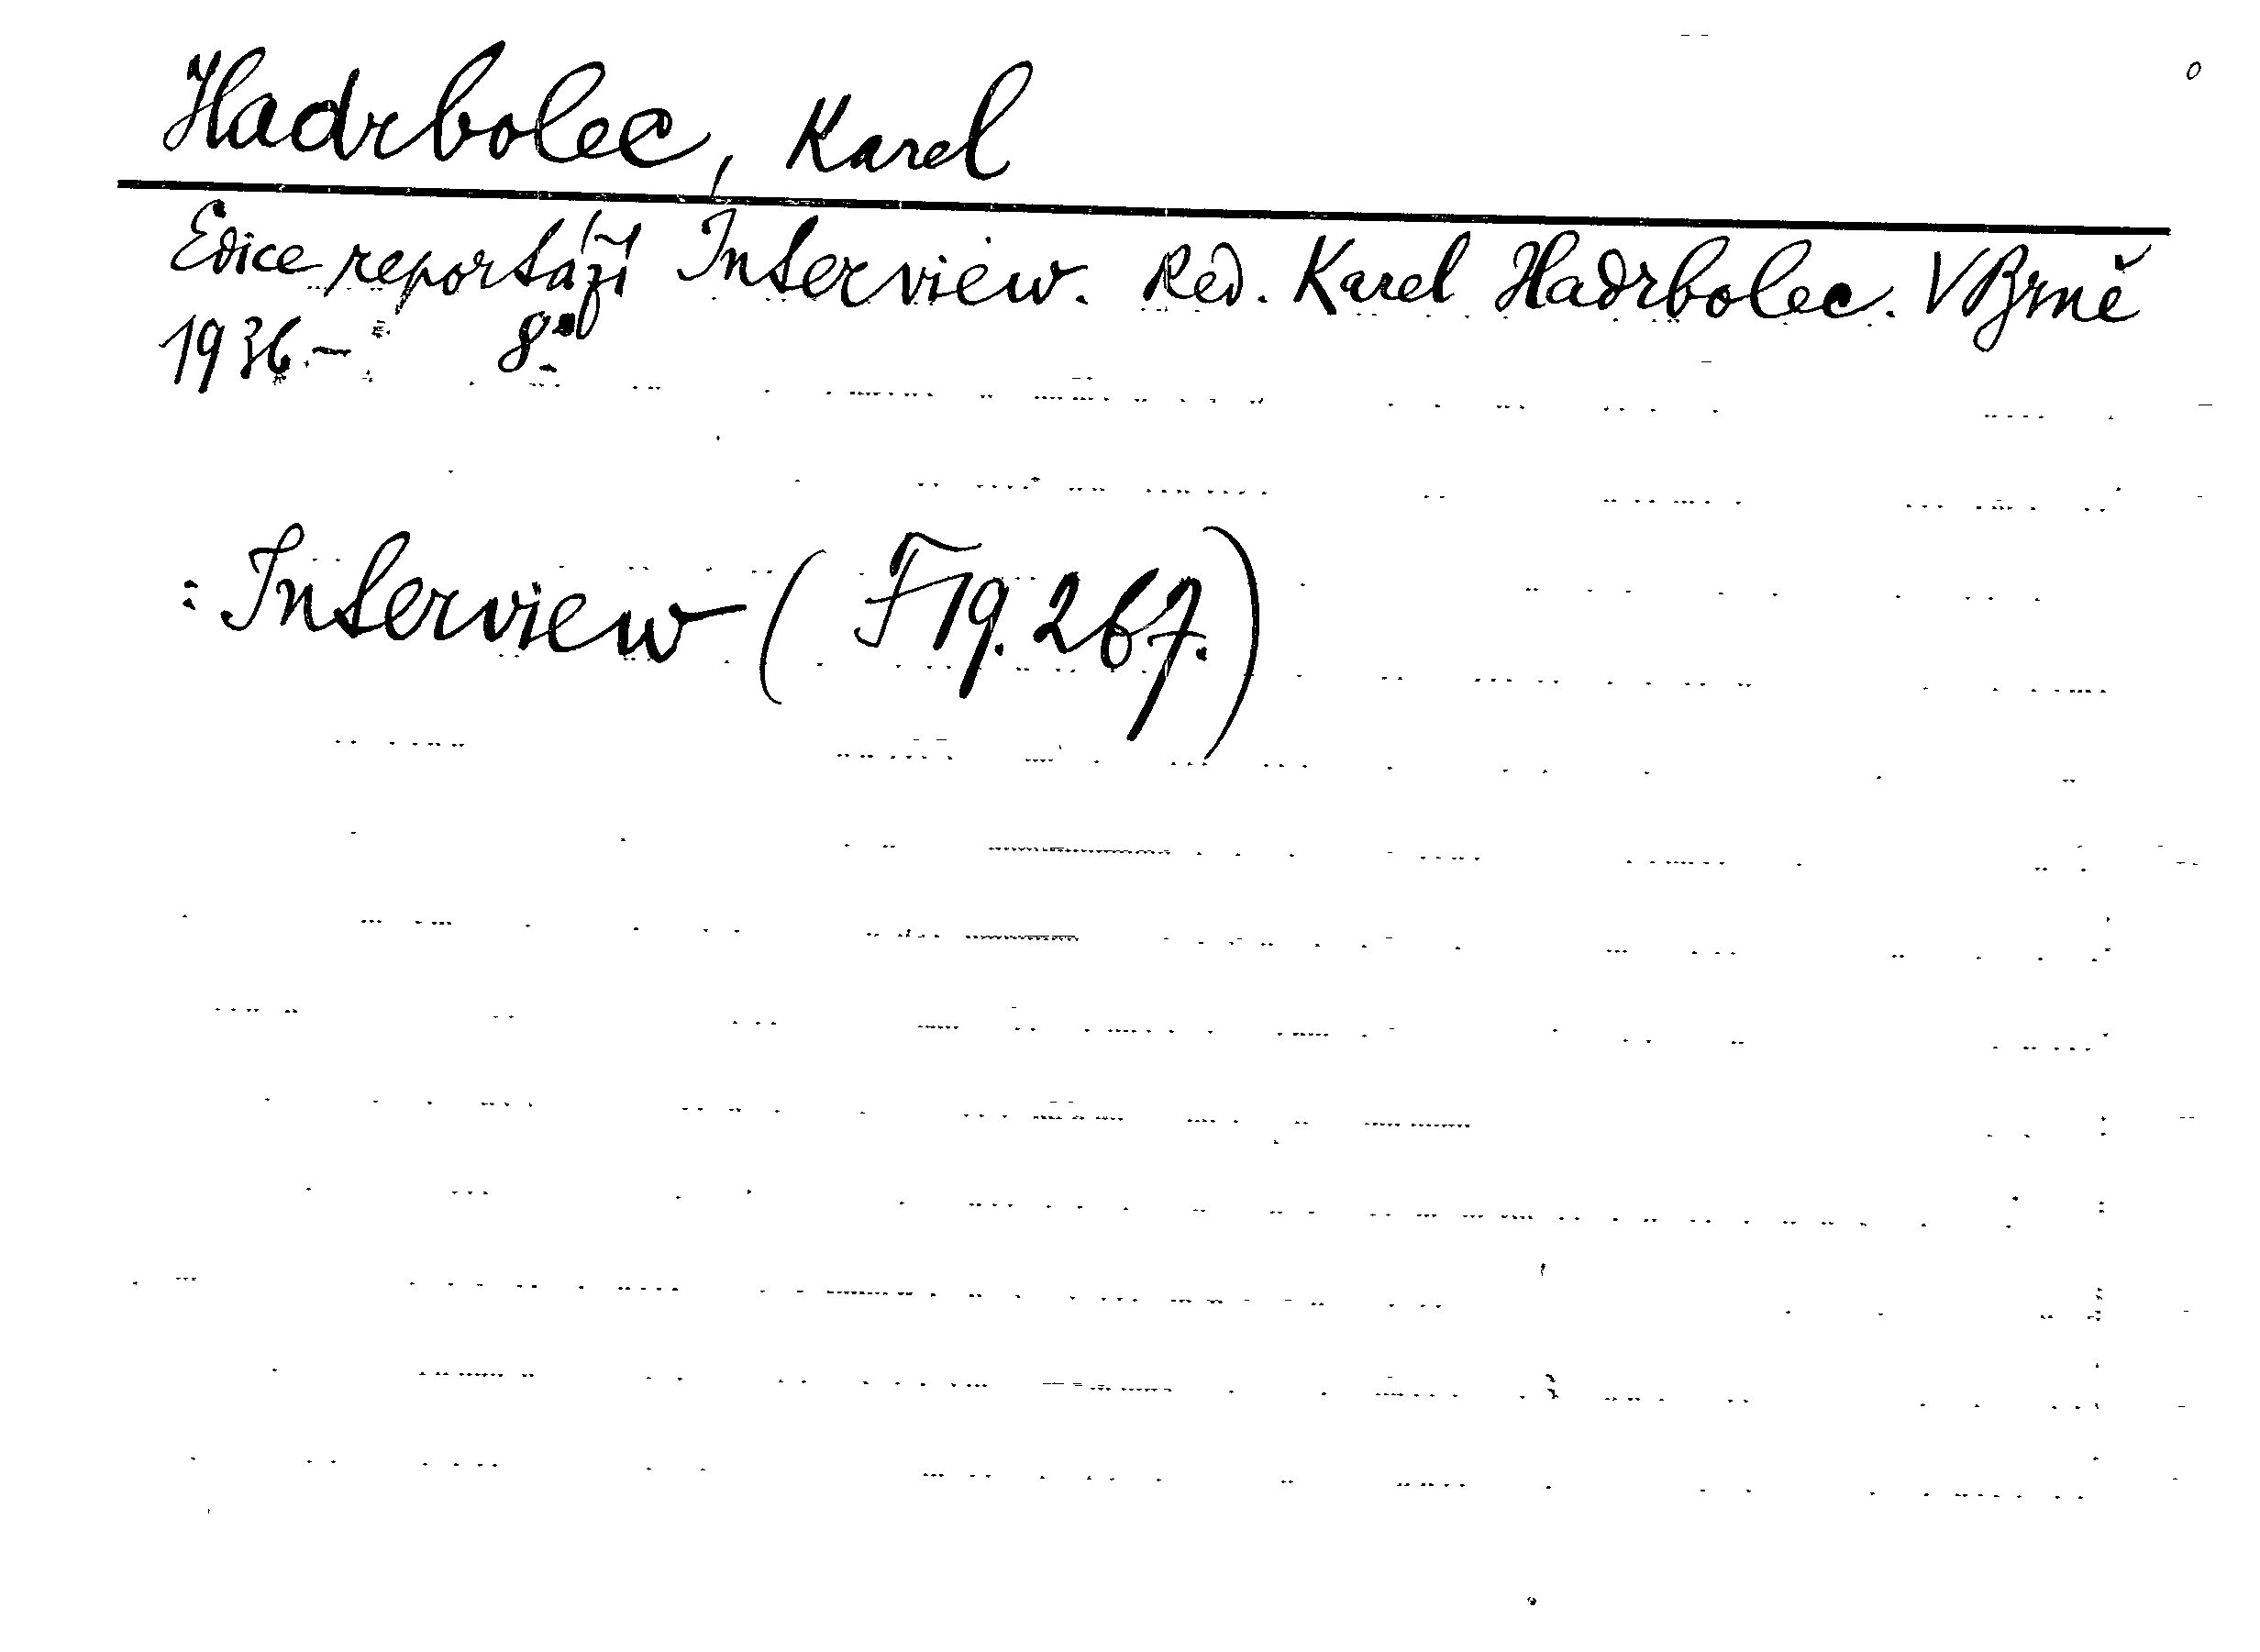 Hadrbolec, Karel
Edice reportáží Interview. Red. Karel Hadrbolec. V Brně
1936.- 8°
: Interview (F 19.267.)